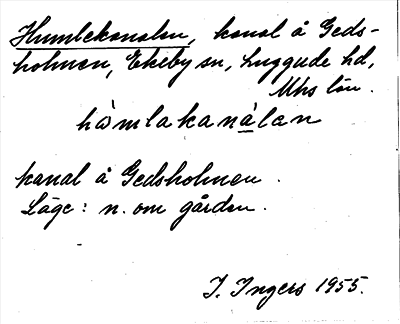 Humlekanalen, kanal å Geds-
holmen, Ekeby sn, Luggude hd,
Mhs län.
hòmlakanàlen
kanal å Gedsholmen.
Läge: n. om gården.
I. Ingers 1955.